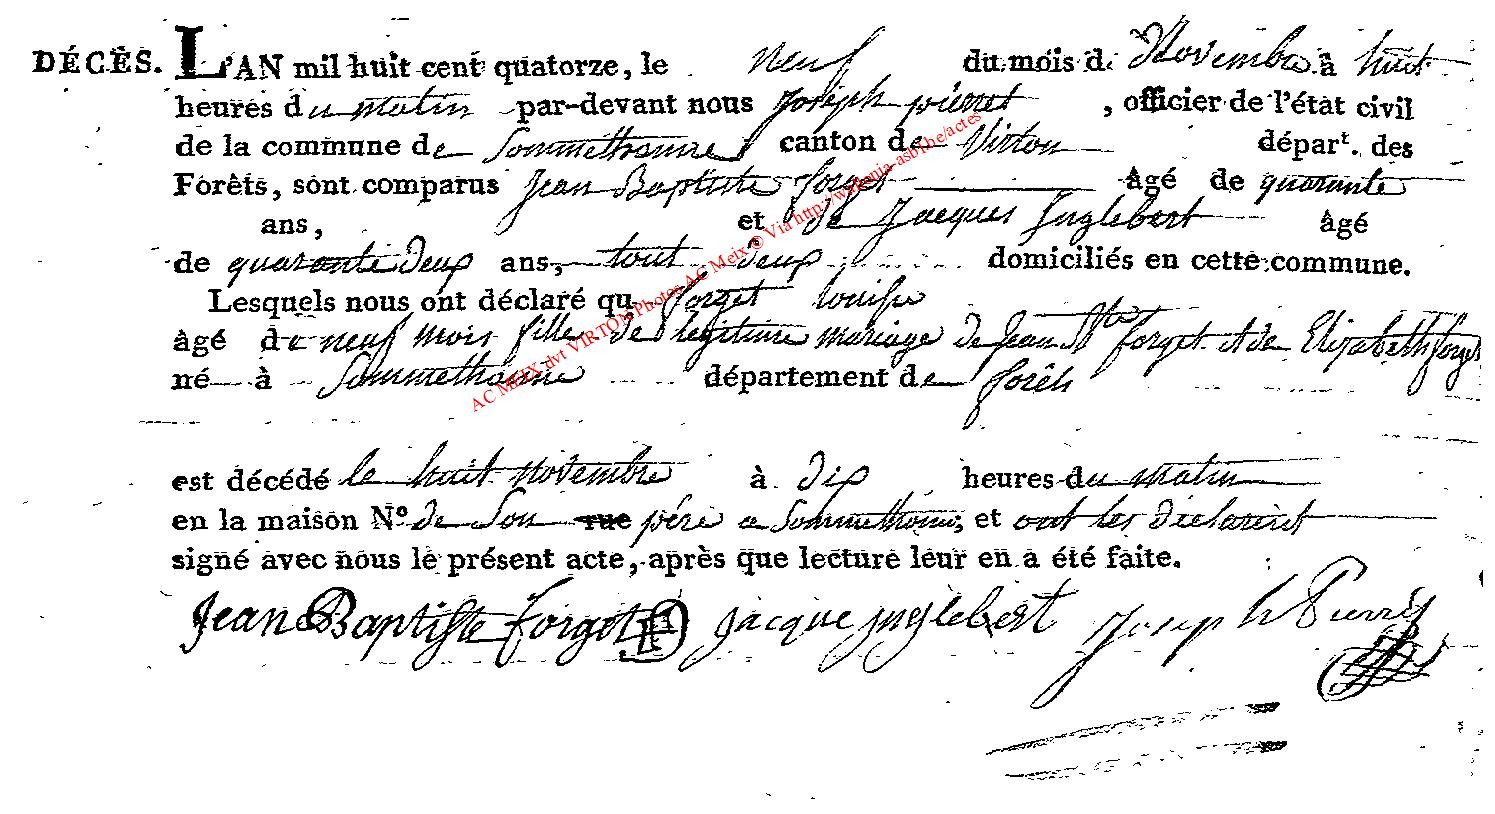 DÉCÈS. L'AN mil huit cent quatorze, le neuf du mois de Novembre à huit
heures du matin par-devant nous Joseph pierret, officier de l'état civil
de la commune de Sommethonne canton de Virton départ. des
Forêts, sont comparus Jean Baptiste forget âgé de quarante
ans, et de Jacques Inglebert âgé
de quarante deux ans, tout deux domiciliés en cette commune.
Lesquels nous ont déclaré qu forget louise
âgé de neuf mois fille de légitime mariage de Jean Bte forget et de Elizabeth forget
né à Sommethonne département de forêts
est décédé le huit novembre à dix heures du matin
en la maison N.º de Son rue père a Sommethonne, et ont les déclarent
signé avec nous le présent acte, après que lecture leur en a été faite.
Jean Baptiste Forget Jacque jnglebert Joseph Pierret
AC MEIX dvt VIRTON Photos AC Meix © Via http://www.onia-asbl.be/actes